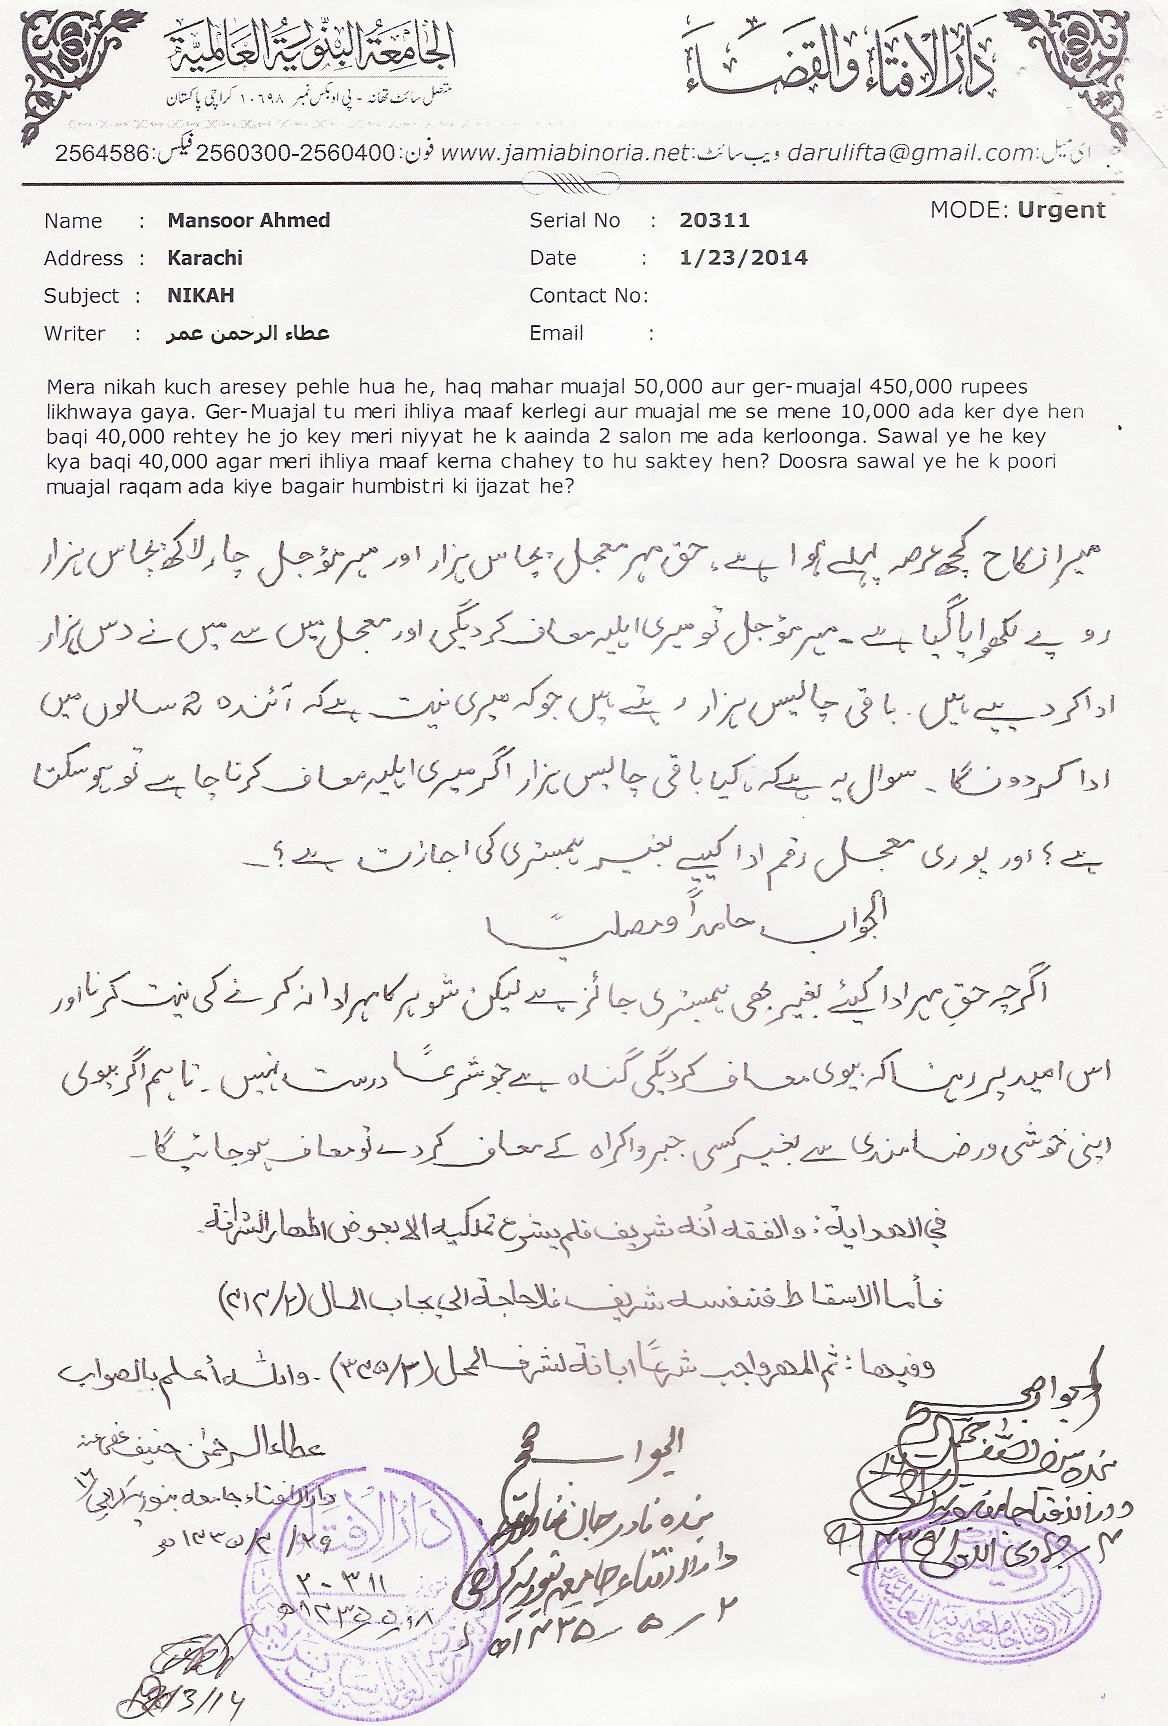 دَارُالاِفتَاء وَالقَضَاءِ
الجَامعَةُ البَنُّورِيَّة العَالمِيَّة
متصل سائٹ تھانہ - پی او بکس نمبر ۱۰۶۹۸ کراچی پاکستان
ای میل:darulifta@gmail.com ویب سائٹ:www.jamiabinoria.net فون:2560300-2560400 فیکس:2564586
MODE: Urgent
Name : Mansoor Ahmed Serial No : 20311
Address : Karachi Date : 1/23/2014
Subject : NIKAH Contact No:
Writer : عطاء الرحمن عمر Email :
Mera nikah kuch aresey pehle hua he, haq mahar muajal 50,000 aur ger-muajal 450,000 rupees
likhwaya gaya. Ger-Muajal tu meri ihliya maaf kerlegi aur muajal me se mene 10,000 ada ker dye hen
baqi 40,000 rehtey he jo key meri niyyat he k aainda 2 salon me ada kerloonga. Sawal ye he key
kya baqi 40,000 agar meri ihliya maaf kerna chahey to hu saktey hen? Doosra sawal ye he k poori
muajal raqam ada kiye bagair humbistri ki ijazat he?
میرا نکاح کچھ عرصہ پہلے ہوا ہے، حق مہر معجل پچاس ہزار اور مہر مؤجل چار لاکھ پچاس ہزار
روپے لکھوایا گیا ہے۔ مہر مؤجل تو میری اہلیہ معاف کردیگی اور معجل میں سے میں نے دس ہزار
ادا کر دیئے ہیں۔ باقی چالیس ہزار رہتے ہیں جو کہ میری نیت ہے کہ آئندہ 2 سالوں میں
ادا کردونگا۔ سوال یہ ہے کہ، کیا باقی چالیس ہزار اگر میری اہلیہ معاف کرنا چاہے تو ہو سکتا
ہے؟ اور پوری معجل رقم ادا کیئے بغیر ہمبستری کی اجازت ہے؟۔
الجواب حامداً ومصلیاً
اگرچہ حق مہر ادا کیئے بغیر بھی ہمبستری جائز ہے لیکن شوہر کا مہر ادا نہ کرنے کی نیت کرنا اور
اس امید پر رہنا کہ بیوی معاف کردیگی گناہ ہے جو شرعاً درست نہیں۔ تاہم اگر بیوی
اپنی خوشی ورضامندی سے بغیر کسی جبر واکراہ کے معاف کردے تو معاف ہوجائیگا۔
في الهداية: والفقه أنه شريف فلم يشرع تملكيه الا بعوض اظهار الشرافة.
فأما الاسقاط فنفسه شريف فلا حاجة الي يجاب المال (۲/۳۱۳)
وفيها: ثم المهر واجب شرعاً ابانة لشرف المحل (۳/۳۴۵) ۔ والله أعلم بالصواب
عطاء الرحمٰن حنیف عفی عنہ
دارالافتاء جامعہ بنوریہ کراچی ۱۶
۲۹/۲/۱۴۳۵ھ
۲۰۳۱۱
الجواب صحیح
بندہ نادر جان
دارالافتاء جامعہ بنوریہ کراچی
۲ – ۵ – ۱۴۳۵ھ
الجواب صحیح
دارالافتاء